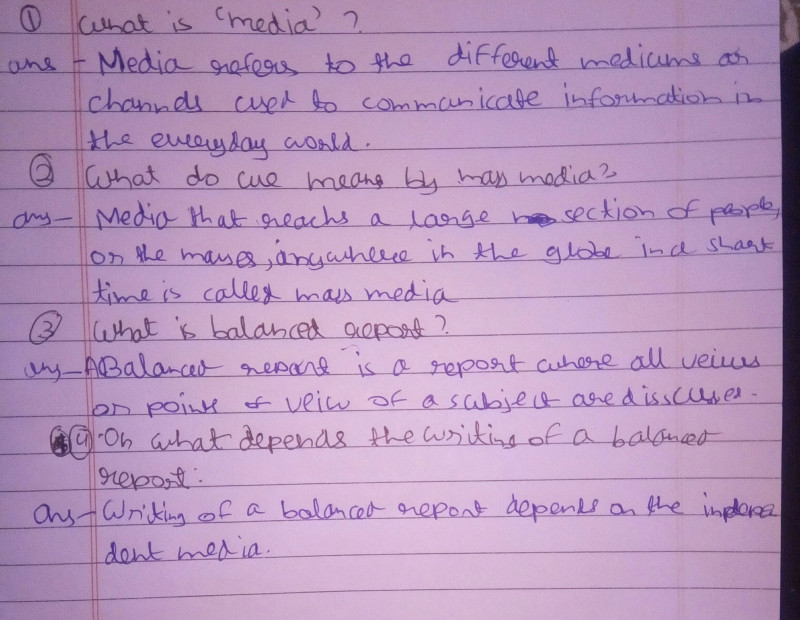 ① What is 'media' ?
ans - Media refers to the different mediums or
channels used to communicate information in
the everyday world.
② What do we means by mass media?
ans - Media that reachs a large section of people,
or the masses, anywhere in the globe in a short
time is called mass media
③ What is balanced report ?
ans - A Balanced report is a report where all veiws
or points of veiw of a subject are disscusses.
④ On what depends the writing of a balanced
report.
Ans - Writing of a balanced report depends on the indepen
dent media.